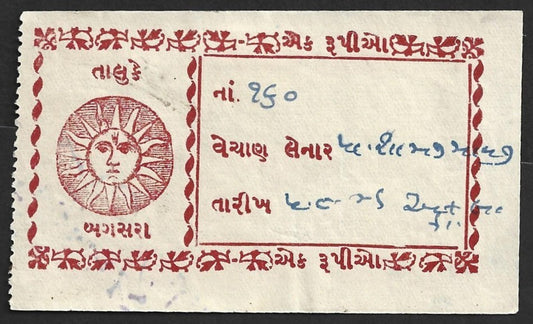 એક રૂપીઓ
તાલુકે
બગસરા
નાં. ૧૬૦
વેચાણ લેનાર
તારીખ
એક રૂપીઓ